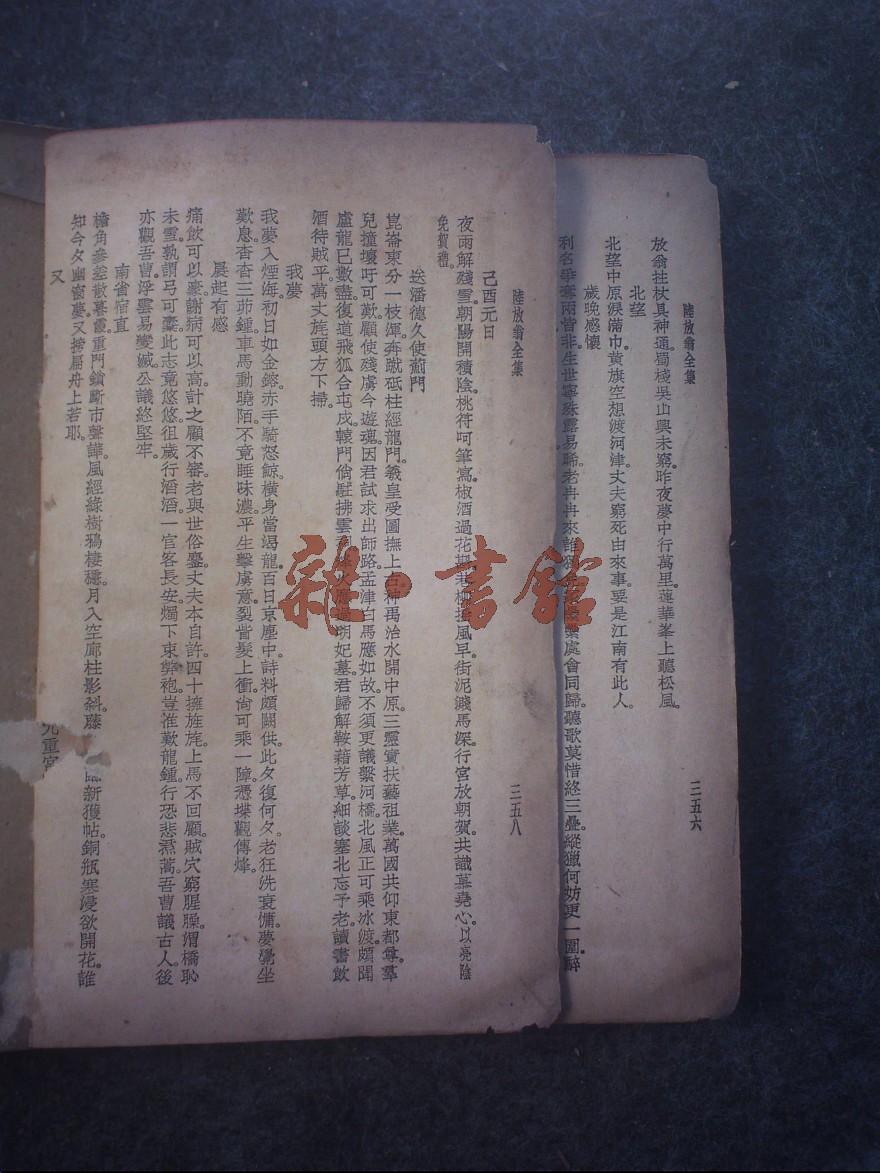 陸放翁全集
三五六
放翁拄杖具神通。蜀棧吳山興未窮。昨夜夢中行萬里。蓮華峯上聽松風。
北望
北望中原淚滿巾。黃旗空想渡河津。丈夫窮死由來事。要是江南有此人。
歲晚感懷
利名爭奪兩皆非。生世寧殊露易晞。老冉冉來誰獨
處會同歸。聽歌莫惜終三疊。縱獵何妨更一圍。醉
陸放翁全集
三五八
己酉元日
夜雨解殘雪。朝陽開積陰。桃符呵筆寫。椒酒過花
風早。街泥濺馬深。行宮放朝賀。共識慕堯心。以亮陰
免賀禮。
送潘德久使薊門
崑崙東分一枝渾。奔蹴砥柱經龍門。羲皇受圖撫上古。神禹治水開中原。三靈實扶藝祖業。萬國共仰東都尊。羣
兒撞壞吁可歎。顧使殘虜今遊魂。因君試求出師路。孟津白馬應如故。不須更議繫河橋。北風正可乘冰渡。頗聞
盧龍已數盡。復道飛狐合屯戍。轅門倘駐拂雲
明妃墓。君歸解鞍藉芳草。細談塞北忘予老。讀書飲
酒待賊平。萬丈旄頭方下掃。
我夢
我夢入煙海。初日如金鎔。赤手騎怒鯨。橫身當渴龍。百日京塵中。詩料頗闕供。此夕復何夕。老狂洗衰慵。夢覺坐
歎息。杳杳三茆鍾。車馬動曉陌。不竟睡味濃。平生擊虜意。裂眥髮上衝。尚可乘一障。憑堞觀傳烽。
晨起有感
痛飲可以豪。謝病可以高。計之顧不審。老與世俗鏖。丈夫本自許。四十擁旌旄。上馬不回顧。賊穴窮腥臊。渭橋恥
未雪。孰謂弓可櫜。此志竟悠悠。徂歲行滔滔。一官客長安。燭下束弊袍。豈惟歎龍鍾。行恐悲焄蒿。吾曹議古人。後
亦觀吾曹。浮雲易變滅。公議終堅牢。
南省宿直
檐角參差散暮霞。重門鎖斷市聲譁。風經綠樹鴉棲穩。月入空廊柱影斜。藤
新獲帖。銅瓶寒浸欲開花。誰
知今夕幽窗夢。又擁扁舟上若耶。
又
九重宮
雜·書館